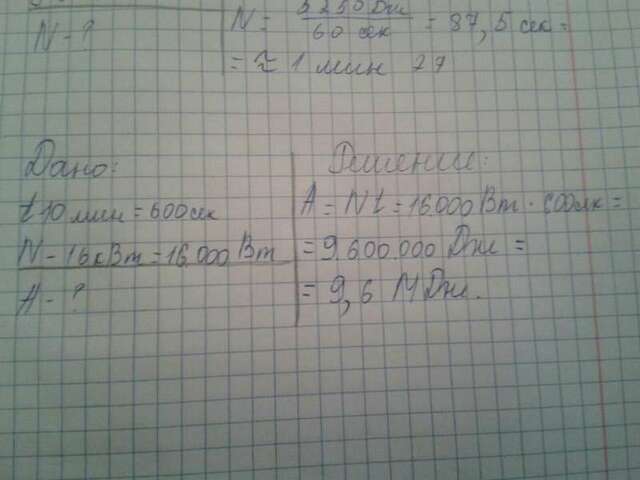 N - ?
N = 5250 Дж / 60 сек = 87,5 сек =
= ≈ 1 мин 27
Дано:
Решение:
t 10 мин = 600 сек
N - 16 кВт = 16.000 Вт
A - ?
A = Nt = 16000 Вт · 600 сек =
= 9.600.000 Дж =
= 9,6 МДж.